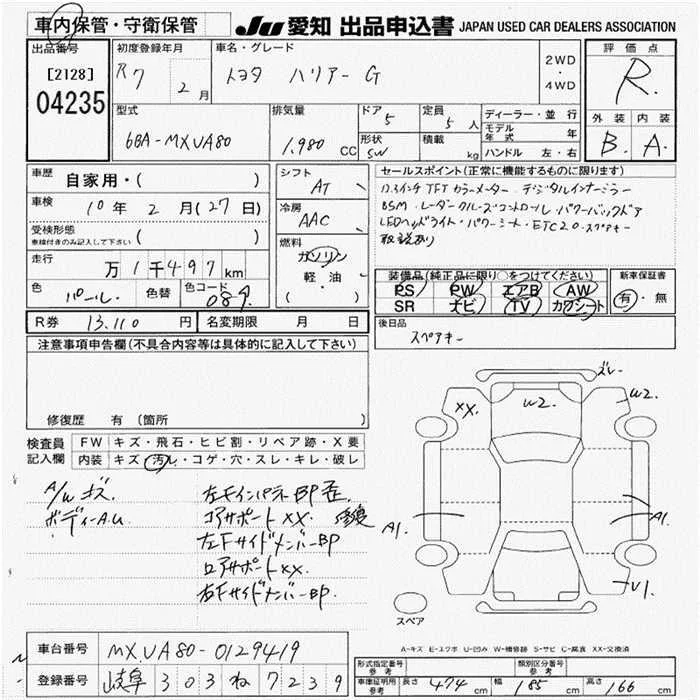 車内保管・守衛保管
JU 愛知 出品申込書 JAPAN USED CAR DEALERS ASSOCIATION
出品番号
[2128]
04235
初度登録年月
R7 2月
車名・グレード
トヨタ ハリアー G
2WD
・
4WD
評価点
R
外装 内装
B. A.
型式
6BA-MXUA80
排気量
1,980 CC
ドア
5
形状
SW
定員
5人
積載
kg
ディーラー・並行
モデル年式 年
ハンドル 左・右
車歴
自家用・( )
車検
10年 2月 (27日)
受検形態
車検付きのみ記入して下さい ( )
走行
万1千497km
色
パール.
色替
色コード
089.
シフト
AT
冷房
AAC
燃料
ガソリン
・
軽・油
( )
セールスポイント(正常に機能するものに限ります)
12.3インチTFTカラーメーター・デジタルインナーミラー
BSM・レーダークルーズコントロール・パワーバックドア
LEDヘッドライト・パワーシート・ETC2.0・スペアキー
取説あり
装備品(純正品に限り○をつけてください)
PS PW エアB AW
SR ナビ TV カワシート
新車保証書
有・無
R券 13.110 円
名変期限 月 日
後日品
スペアキー
注意事項申告欄(不具合内容等は具体的に記入して下さい)
修復歴 有 (箇所 )
検査員
記入欄
FW キズ・飛石・ヒビ割・リペア跡・X要
内装 キズ・汚レ・コゲ・穴・スレ・キレ・破レ
A/W キズ.
ボディーA.U
左Fインパネ BP 歪
コアサポート XX. 修復
左Fサイドメンバー BP
ロアサポート XX.
右Fサイドメンバー BP.
ズレ
XX.
W2.
W2.
A1.
A1.
U1.
スペア
A-キズ E-エクボ U-凹み W-補修跡 S-サビ C-腐食 XX-交換済
車台番号
MXUA80-0129419
登録番号
岐阜 303 ね 7239
形式指定番号
参考
類別区分番号
参考
車庫証明用
参考
長さ 474 cm
幅 185 cm
高さ 166 cm